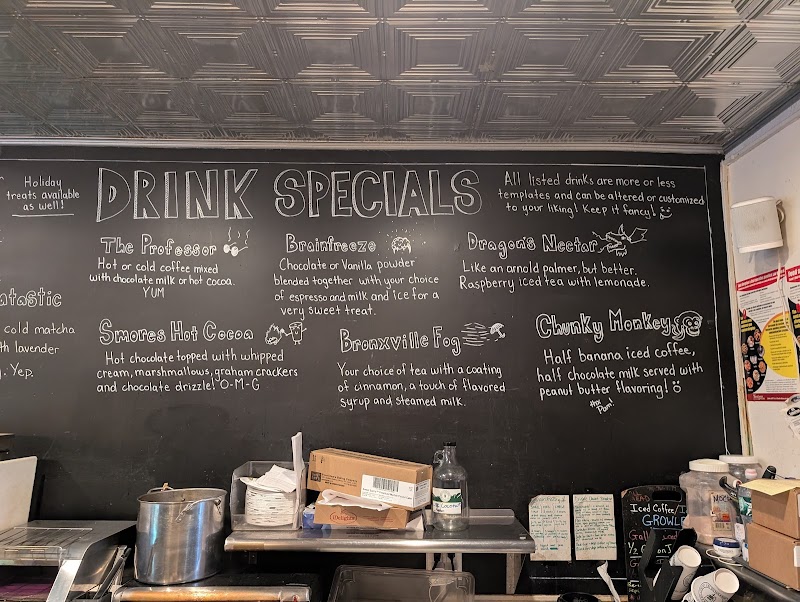 Holiday
treats available
as well!
DRINK SPECIALS
All listed drinks are more or less
templates and can be altered or customized
to your liking! Keep it fancy!
The Professor
Hot or cold coffee mixed
with chocolate milk or hot cocoa.
YUM
Brainfreeze
Chocolate or Vanilla powder
blended together with your choice
of espresso and milk and ice for a
very sweet treat.
Dragon's Nectar
Like an arnold palmer, but better.
Raspberry iced tea with lemonade.
tastic
cold matcha
th lavender
. Yep.
Smores Hot Cocoa
Hot chocolate topped with whipped
cream, marshmallows, graham crackers
and chocolate drizzle! O-M-G
Bronxville Fog
Your choice of tea with a coating
of cinnamon, a touch of flavored
syrup and steamed milk.
Chunky Monkey
Half banana iced coffee,
half chocolate milk served with
peanut butter flavoring!
Hot
Dam!
Coconut
Iced Coffee/
GROWL